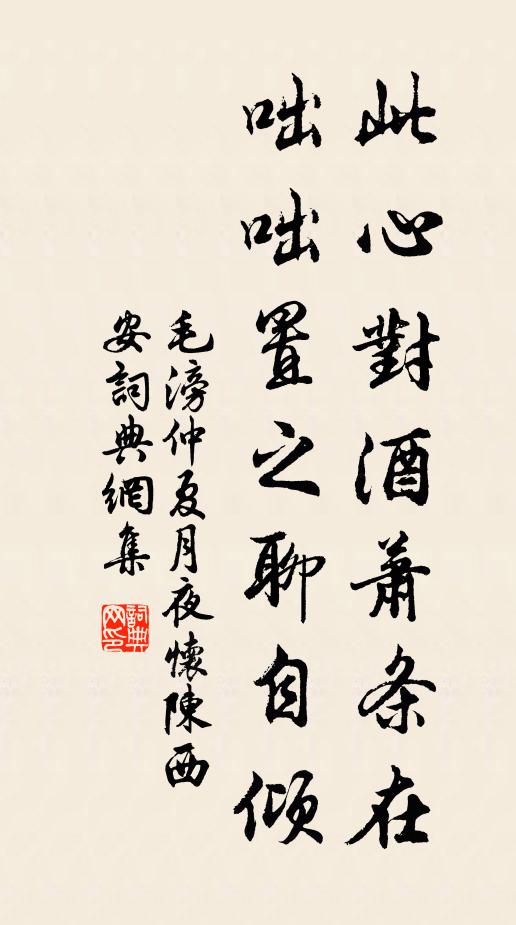 此心對酒蕭条在
咄咄置之聊自傾
毛滂仲夏月夜懷陳西
安詞典網集
詞典
网印